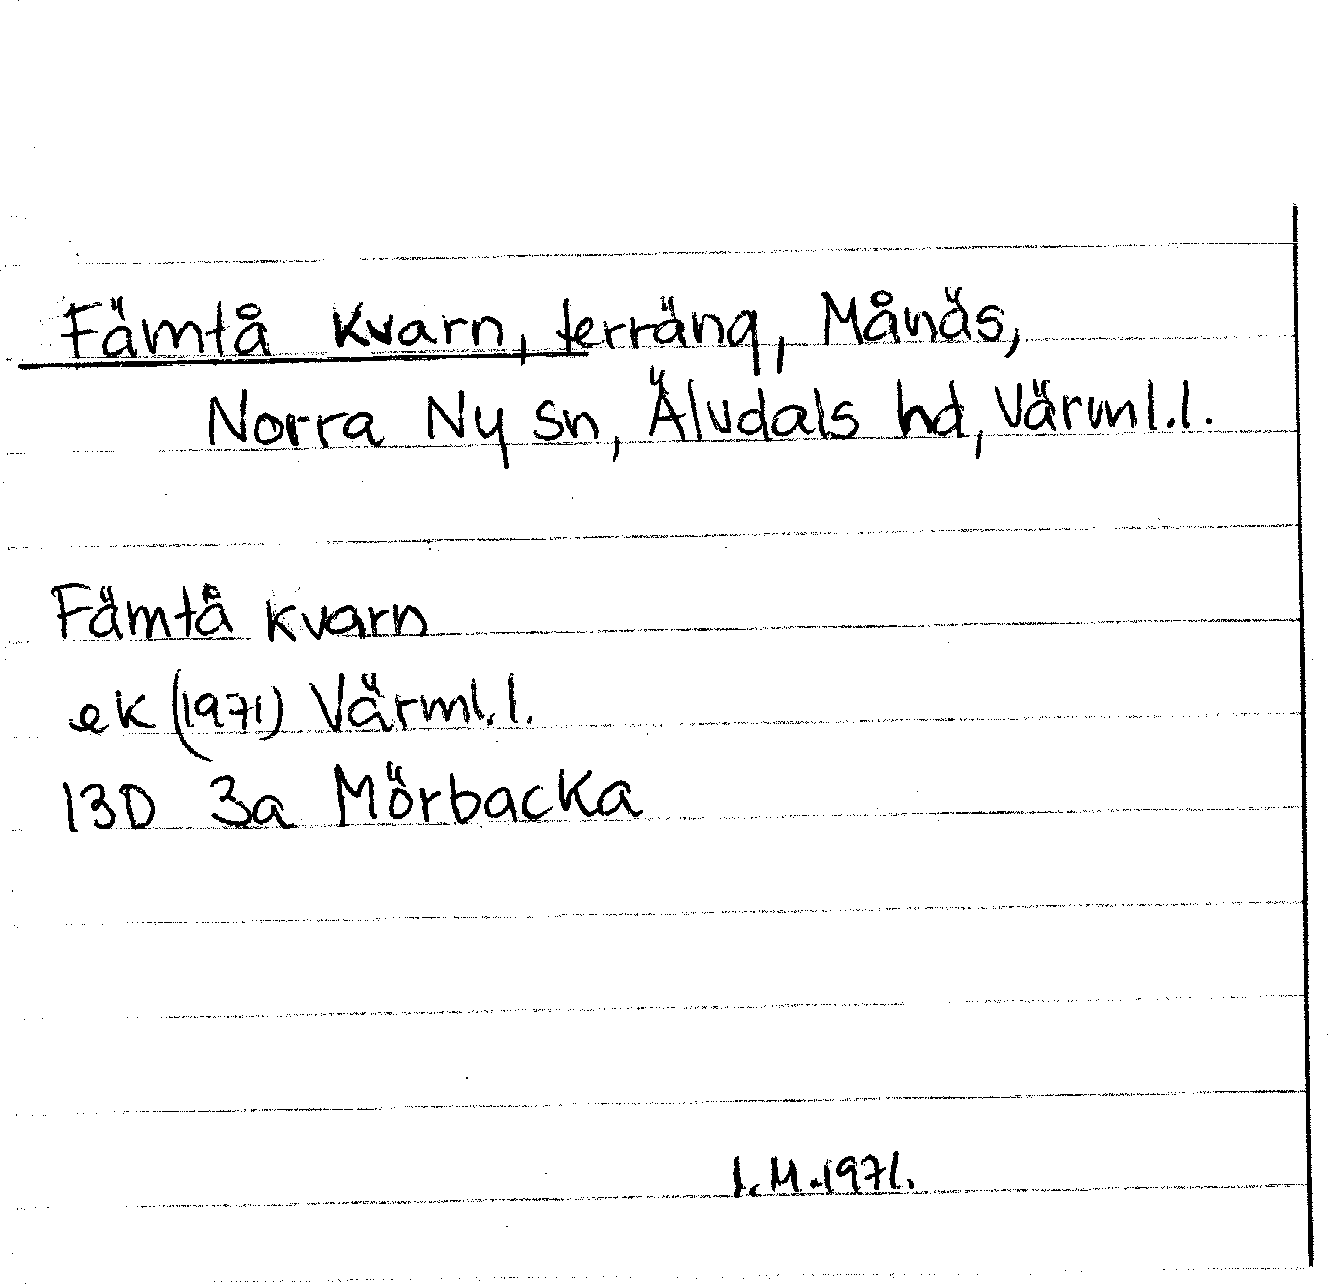 Fämtå kvarn, terräng, Månäs,
Norra Ny sn, Älvdals hd, Värml.l.
Fämtå kvarn
ek (1971) Värml.l.
13D 3a Mörbacka
I.M.1971.